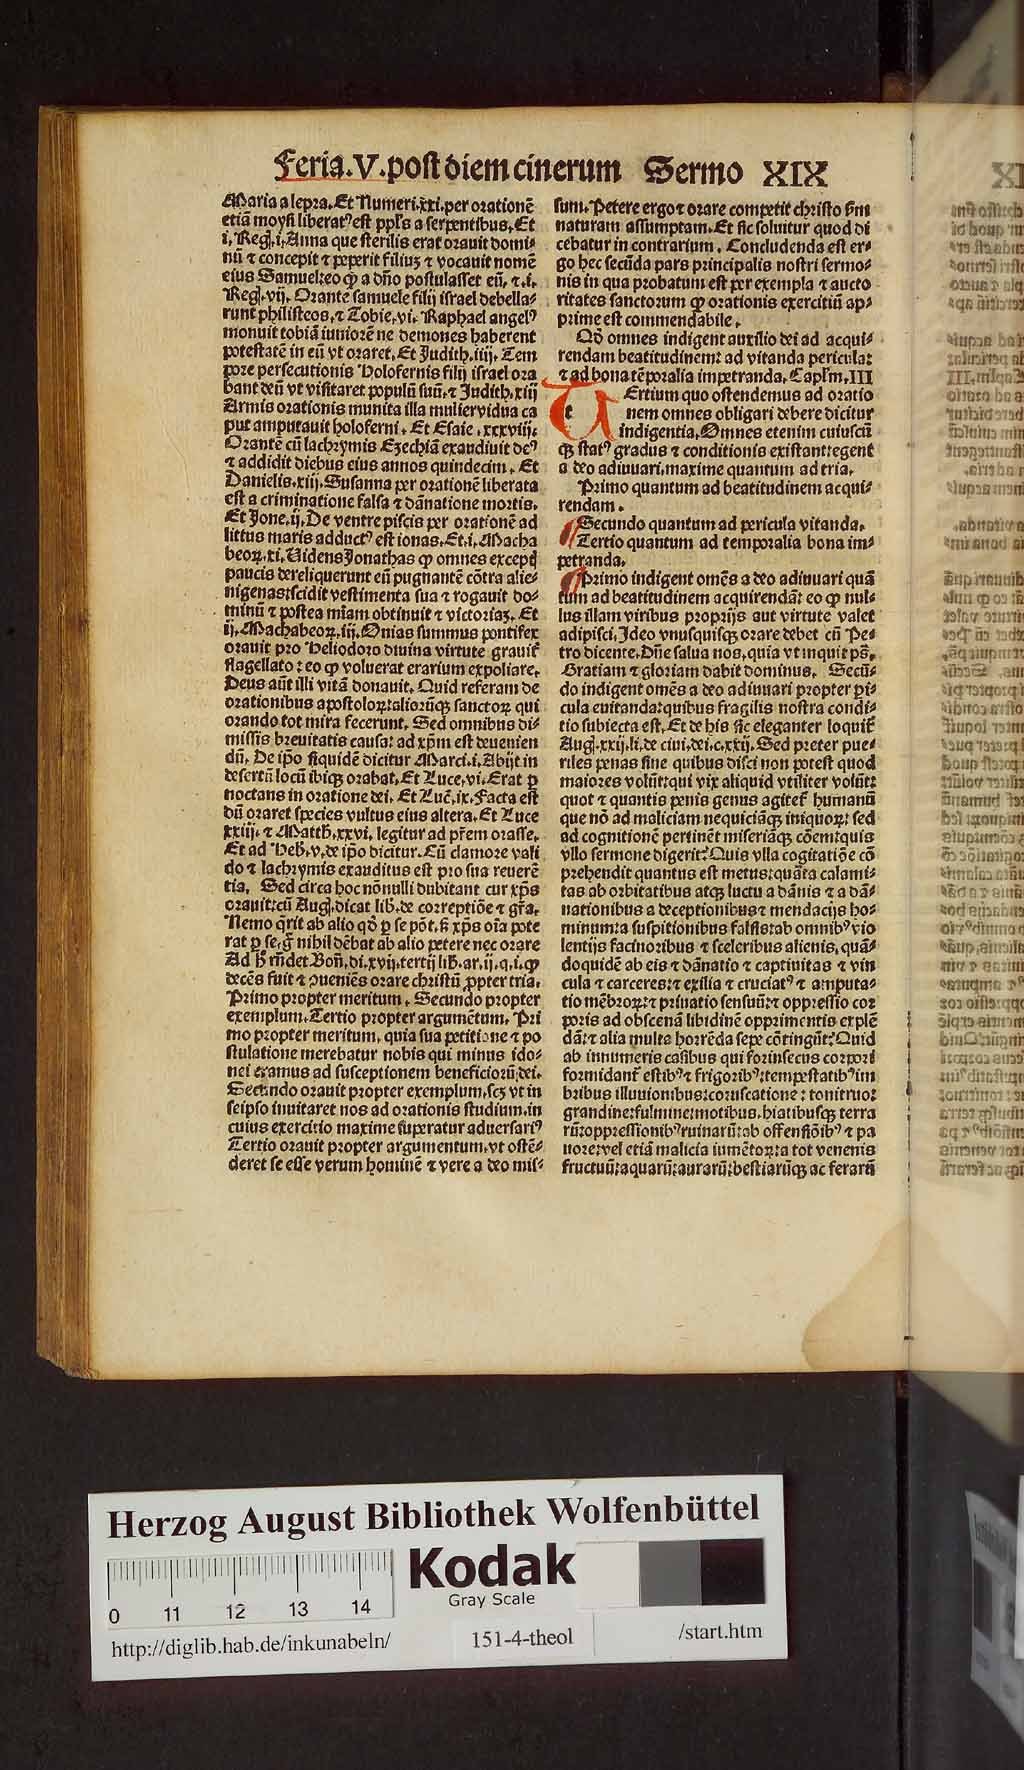 Feria.V.post diem cinerum Sermo XIX
Maria a lepra. Et Numeri.xxi.per orationē
etiā moysi liberatꝰ est ppl's a serpentibus. Et
i. Reg̃.i. Anna que sterilis erat orauit domi⸗
nū ⁊ concepit ⁊ peperit filiuʒ ⁊ vocauit nomē
eius Samuel:eo ꝙ a dn̄o postulasset eū. ⁊.i.
Reg̃.vij. Orante samuele filij israel debella⸗
runt philisteos. ⁊ Tobie.vi. Raphael angelꝰ
monuit tobiā iuniorē ne demones haberent
potestatē in eū vt oraret. Et Judith.iiij. Tem
pore persecutionis Holofernis filij israel ora
bant deū vt visitaret populū suū. ⁊ Judith.xiij
Armis orationis munita illa mulier vidua ca
put amputauit holoferni. Et Esaie .xxxviij.
Orantē cū lachrymis Ezechiā exaudiuit deꝰ
⁊ addidit diebus eius annos quindecim. Et
Danielis.xiij. Susanna per orationē liberata
est a criminatione falsa ⁊ dānatione mortis.
Et Jone.ij. De ventre piscis per orationē ad
littus maris adductꝰ est ionas. Et.i. Macha
beoꝝ.xi. Uidens Jonathas ꝙ omnes except̨
paucis dereliquerunt eū pugnantē cōtra alie⸗
nigenas:scidit vestimenta sua ⁊ rogauit do⸗
minū ⁊ postea mīam obtinuit ⁊ victoriaʒ. Et
ij. Machabeoꝝ.iij. Onias summus pontifex
orauit pro Heliodoro diuina virtute grauit̃
flagellato: eo ꝙ voluerat erarium expoliare.
Deus aūt illi vitā donauit. Quid referam de
orationibus apostoloꝝ:alioruꝙ sanctoꝝ qui
orando tot mira fecerunt. Sed omnibus di⸗
missis breuitatis causa: ad xp̄m est deuenien
dū. De ip̄o siquidē dicitur Marci.i. Abijt in
desertū locū ibiqꝫ orabat. Et Luce.vi. Erat ꝑ
noctans in oratione dei. Et Lucē.ix. Facta est
dū oraret species vultus eius altera. Et Luce
xxiij. ⁊ Matth̃.xxvi. legitur ad p̄rem orasse.
Et ad Heb̃.v. de ip̄o dicitur. Cū clamore vali
do ⁊ lachrymis exauditus est pro sua reuerē
tia. Sed circa hoc nōnulli dubitant cur xp̄s
orauit:cū Aug̃. dicat lib̃. de correptiōe ⁊ gr̄a.
Nemo q̄rit ab alio qd̄ ꝑ se pōt. s̄ xp̄s oīa pote
rat ꝑ se. g̃ nihil dēbat ab alio petere nec orare
Ad h̄ r̄ndet Bon̄. di.xvij. tertij lib̃. ar.ij.q.i. ꝙ
decēs fuit ⁊ ꝯueniēs orare christū ꝓpter tria.
Primo propter meritum. Secundo propter
exemplum. Tertio propter argumētum. Pri
mo propter meritum. quia sua petitione ⁊ po
stulatione merebatur nobis qui minus ido⸗
nei eramus ad susceptionem beneficiorū dei.
Secundo orauit propter exemplum.scʒ vt in
seipso inuitaret nos ad orationis studium.in
cuius exercitio maxime superatur aduersariꝰ
Tertio orauit propter argumentum.vt ostē⸗
deret se esse verum hominē ⁊ vere a deo mis⸗
sum. Petere ergo ⁊ orare competit christo s̄m
naturam assumptam. Et sic soluitur quod di
cebatur in contrarium. Concludenda est er⸗
go hec secūda pars principalis nostri sermo⸗
nis in qua probatum est per exempla ⁊ aucto
ritates sanctorum ꝙ orationis exercitiū ap⸗
prime est commendabile.
Qd̄ omnes indigent auxilio dei ad acqui⸗
rendam beatitudinem: ad vitanda pericula:
⁊ ad bona tēporalia impetranda. Capl'm.III
TErtium quo ostendemus ad oratio
nem omnes obligari debere dicitur
indigentia. Omnes etenim cuiuscū
qꝫ statꝰ gradus ⁊ conditionis existant:egent
a deo adiuuari.maxime quantum ad tria.
Primo quantum ad beatitudinem acqui⸗
rendam.
Secundo quantum ad pericula vitanda.
Tertio quantum ad temporalia bona im⸗
petranda.
Primo indigent omēs a deo adiuuari quā
tum ad beatitudinem acquirendā: eo ꝙ nul⸗
lus illam viribus proprijs aut virtute valet
adipisci. Ideo vnusquisqꝫ orare debet cū Pe⸗
tro dicente. Dn̄e salua nos. quia vt inquit ps̄.
Gratiam ⁊ gloriam dabit dominus. Secū⸗
do indigent omēs a deo adiuuari propter pi⸗
cula euitanda:quibus fragilis nostra condi⸗
tio subiecta est. Et de his sic eleganter loquit̃
Aug̃.xxij.li.de ciui.dei.c.xxij. Sed preter pue⸗
riles penas sine quibus disci non potest quod
maiores volūt:qui vix aliquid vtiliter volūt:
quot ⁊ quantis penis genus agitet̃ humanū
que nō ad maliciam nequiciāqꝫ iniquoꝝ: sed
ad cognitionē pertinēt miseriāqꝫ cōem:quis
vllo sermone digerit? Quis vlla cogitatiōe cō
prehendit quantus est metus:quāta calami⸗
tas ab orbitatibus atqꝫ luctu a dānis ⁊ a dā⸗
nationibus a deceptionibus ⁊ mendacijs ho⸗
minum:a suspitionibus falsis:ab omnibꝰ vio
lentijs facinoribus ⁊ sceleribus alienis. quā⸗
doquidē ab eis ⁊ dānatio ⁊ captiuitas ⁊ vin
cula ⁊ carceres:⁊ exilia ⁊ cruciatꝰ ⁊ amputa⸗
tio mēbroꝝ:⁊ priuatio sensuū:⁊ oppressio cor
poris ad obscenā libidinē opprimentis explē
dā:⁊ alia multa horrēda sepe cōtingūt? Quid
ab innumeris casibus qui forinsecus corpori
formidant̃ estibꝰ ⁊ frigoribꝰ:tempestatibꝰ im
bribus illuuionibus:coruscatione: tonitruo:
grandine:fulmine:motibus.hiatibusqꝫ terra
rū:oppressionibꝰ ruinarū:ab offensiōibꝰ ⁊ pa
uore:vel etiā malicia iumētoꝝ:a tot venenis
fructuū:aquarū:aurarū:bestiarūqꝫ ac ferarū
Herzog August Bibliothek Wolfenbüttel
Kodak
Gray Scale
0 11 12 13 14
http://diglib.hab.de/inkunabeln/
151-4-theol
/start.htm